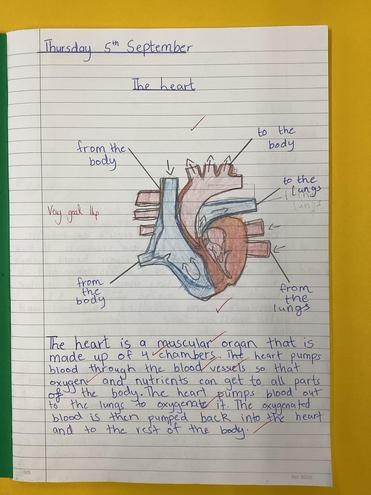 Thursday 5th September
The heart
from the body
to the body
to the lungs
Very good
from the body
from the lungs
The heart is a muscular organ that is
made up of 4 chambers. The heart pumps
blood through the blood vessels so that
oxygen and nutrients can get to all parts
of the body. The heart pumps blood out
to the lungs to oxygenate it. The oxygenated
blood is then pumped back into the heart
and to the rest of the body.